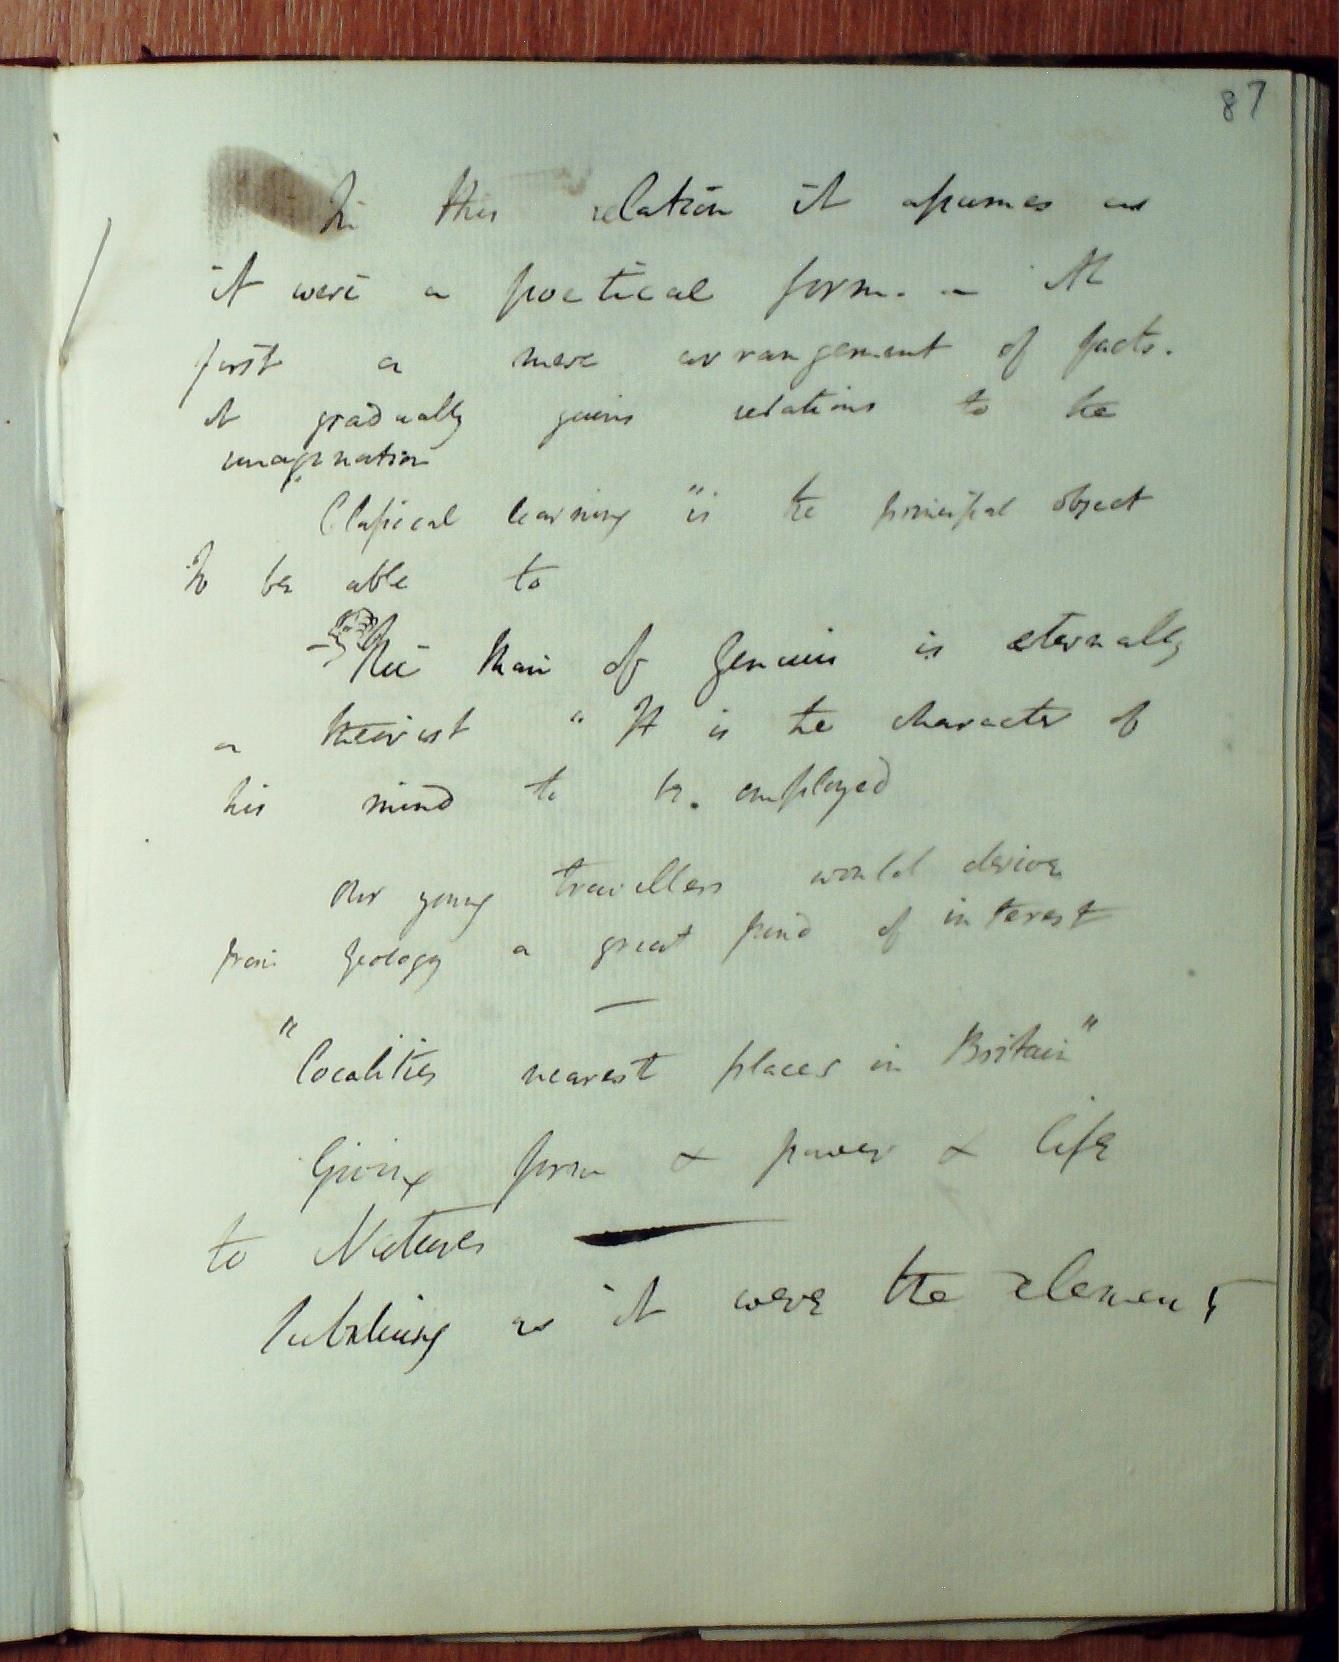 87
In this relation it assumes as
it were a poetical form. - At
first a mere arrangement of facts.
it gradually gains relations to the
imagination
"Classical learning" is the principal object
To be able to
The Man of Genius is eternally
a theorist "It is the character of
his mind to be employed
Our young travellers would derive
from Geology a great fund of interest
"Localities nearest places in Britain"
Giving form & power & life
to Natures
as it were the element